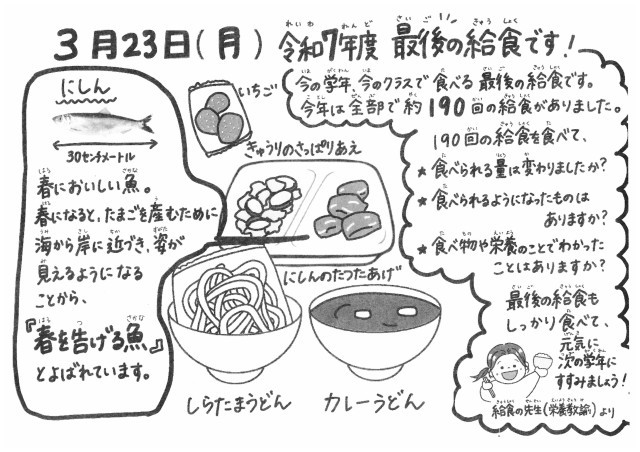 3月23日(月) 令和7年度 最後の給食です!
にしん
30センチメートル
春においしい魚。
春になると、たまごを産むために
海から岸に近づき、姿が
見えるようになる
ことから、
『春を告げる魚』
とよばれています。
いちご
きゅうりのさっぱりあえ
にしんのたつたあげ
しらたまうどん
カレーうどん
今の学年、今のクラスで食べる最後の給食です。
今年は全部で約190回の給食がありました。
190回の給食を食べて、
★食べられる量は変わりましたか?
★食べられるようになったものは
ありますか?
★食べ物や栄養のことでわかった
ことはありますか?
最後の給食も
しっかり食べて、
元気に
次の学年に
すすみましょう!
給食の先生(栄養教諭)より